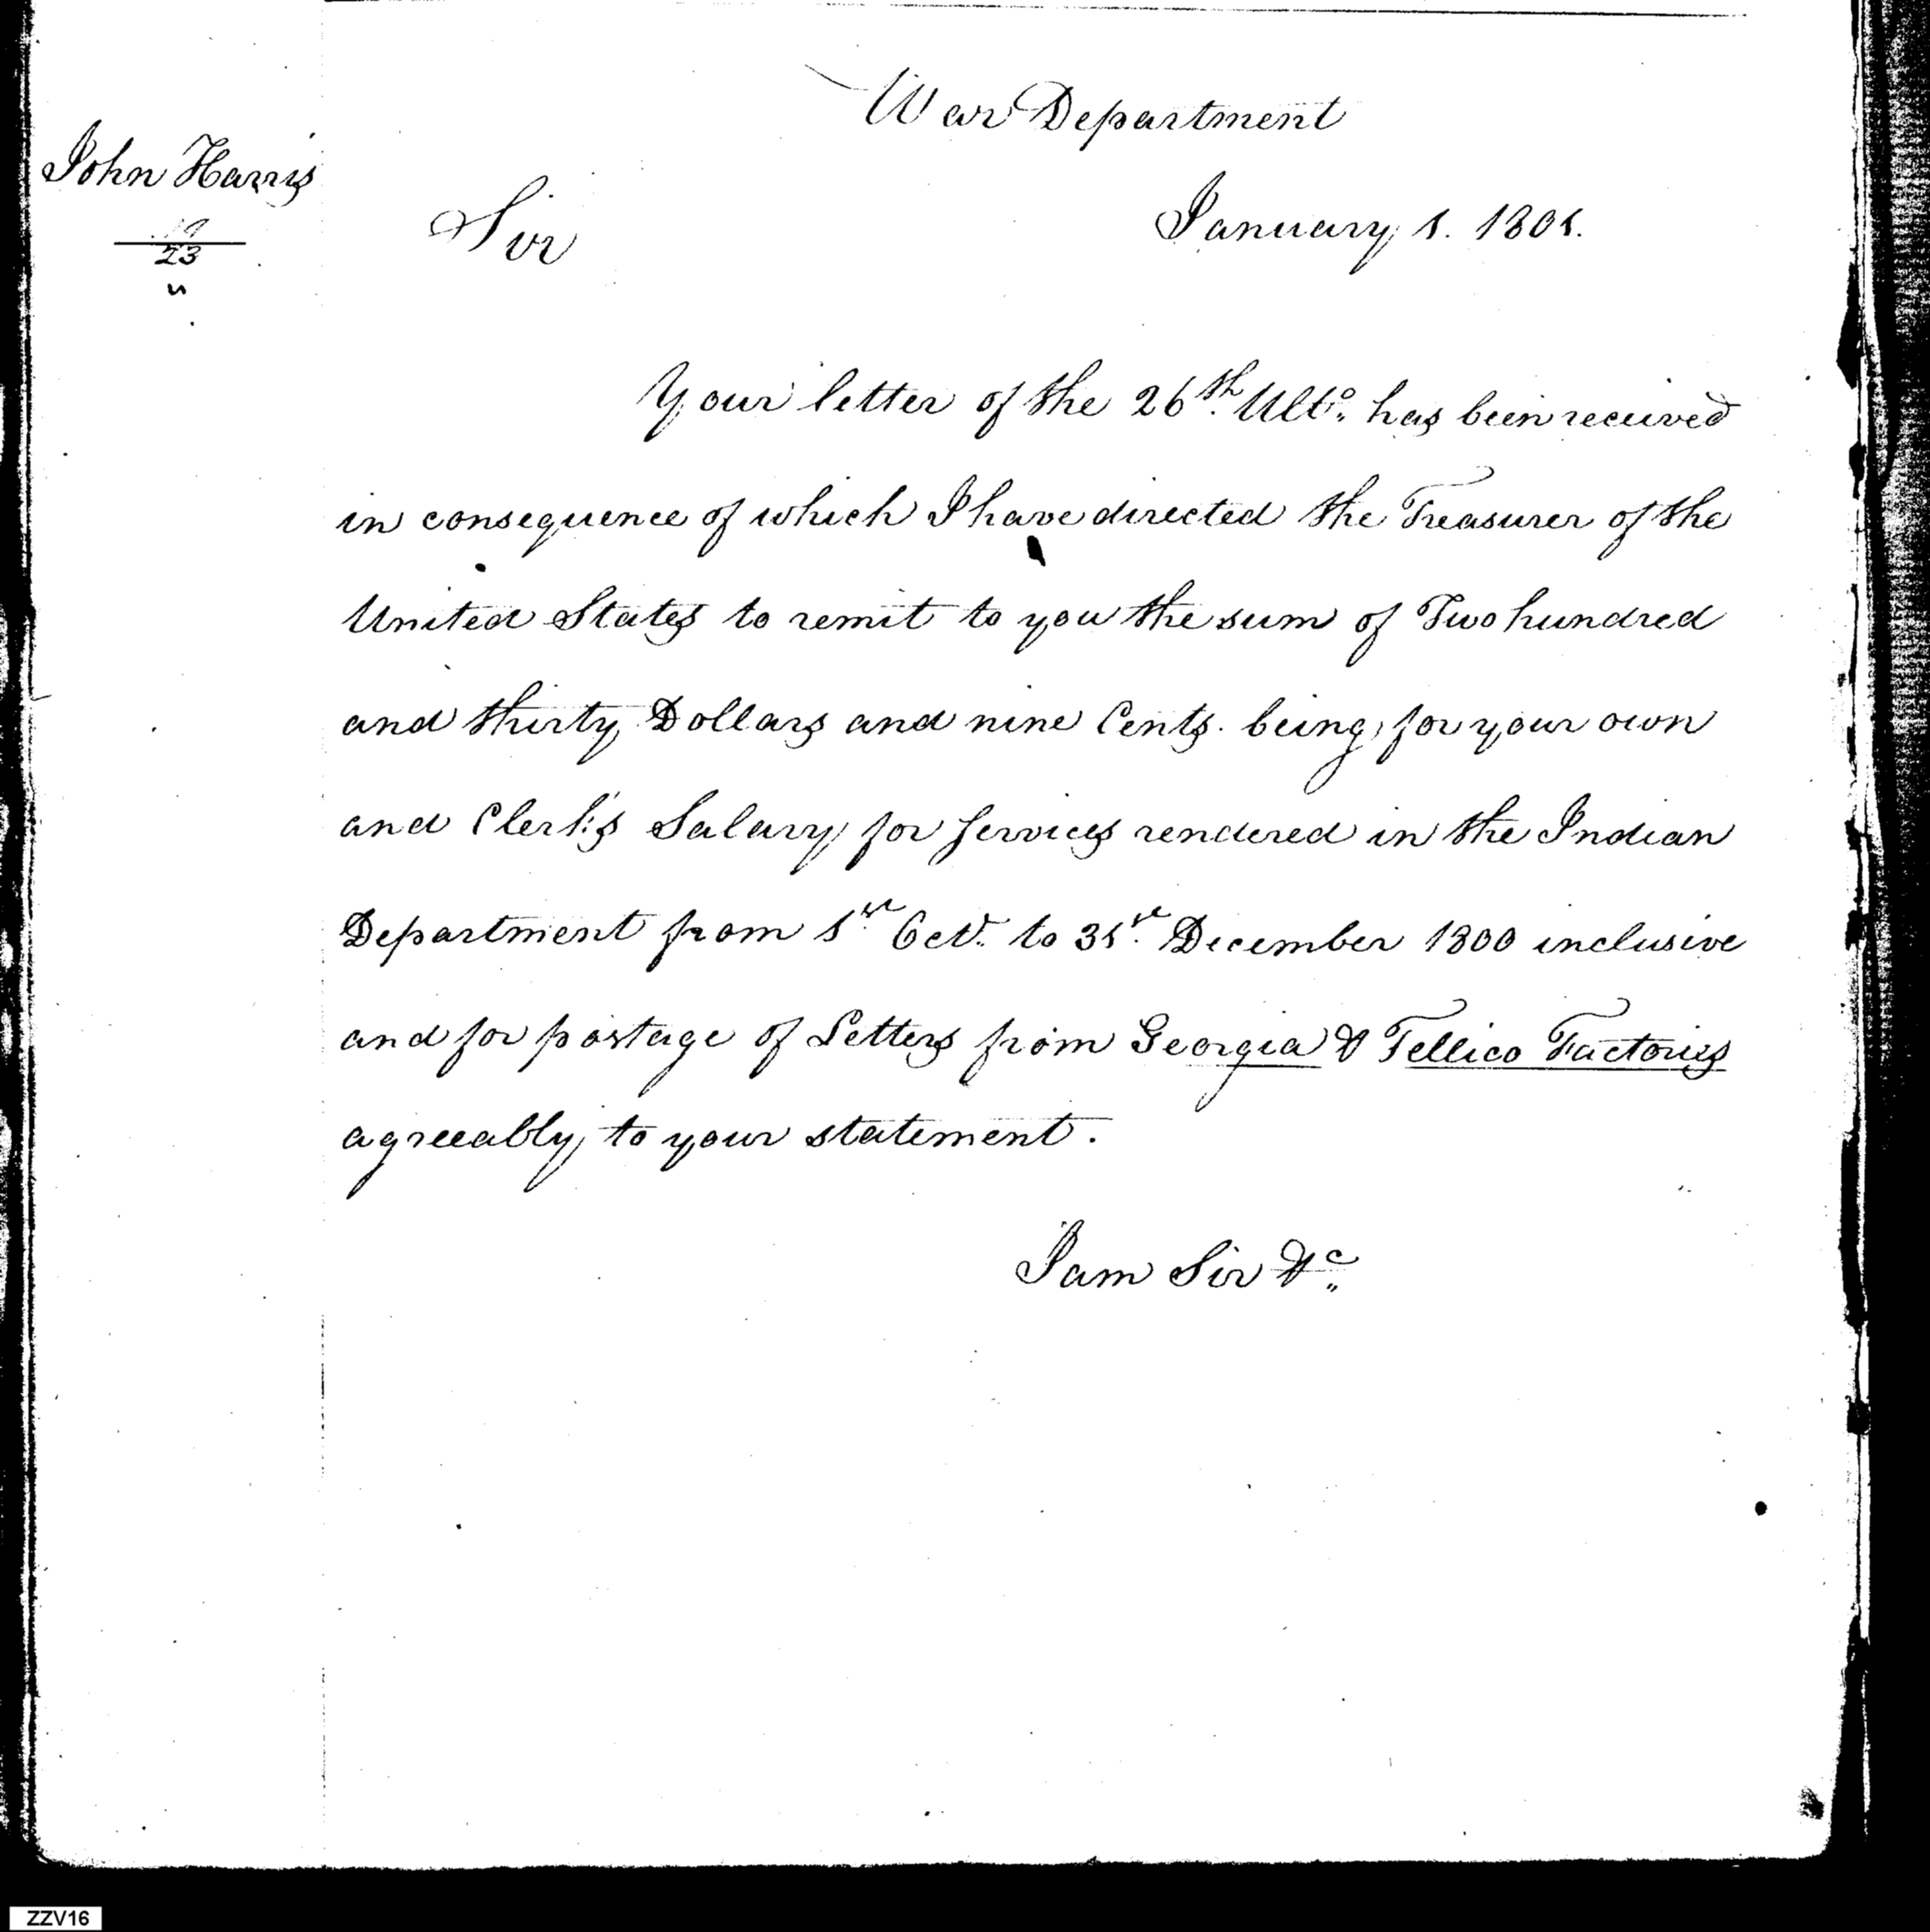 War Department
John Harris
Sir
January 1. 1801.
23
Your letter of the 26th. Ulto. has been received
in consequence of which I have directed the Treasurer of the
United States to remit to you the sum of Two hundred
and thirty Dollars and nine Cents. being for your own
and Clerk's Salary for services rendered in the Indian
Department from 1st. Octr. to 31st. December 1800 inclusive
and for postage of Letters from Georgia & Tellico Factories
agreeably to your statement.
I am Sir &c.
ZZV16